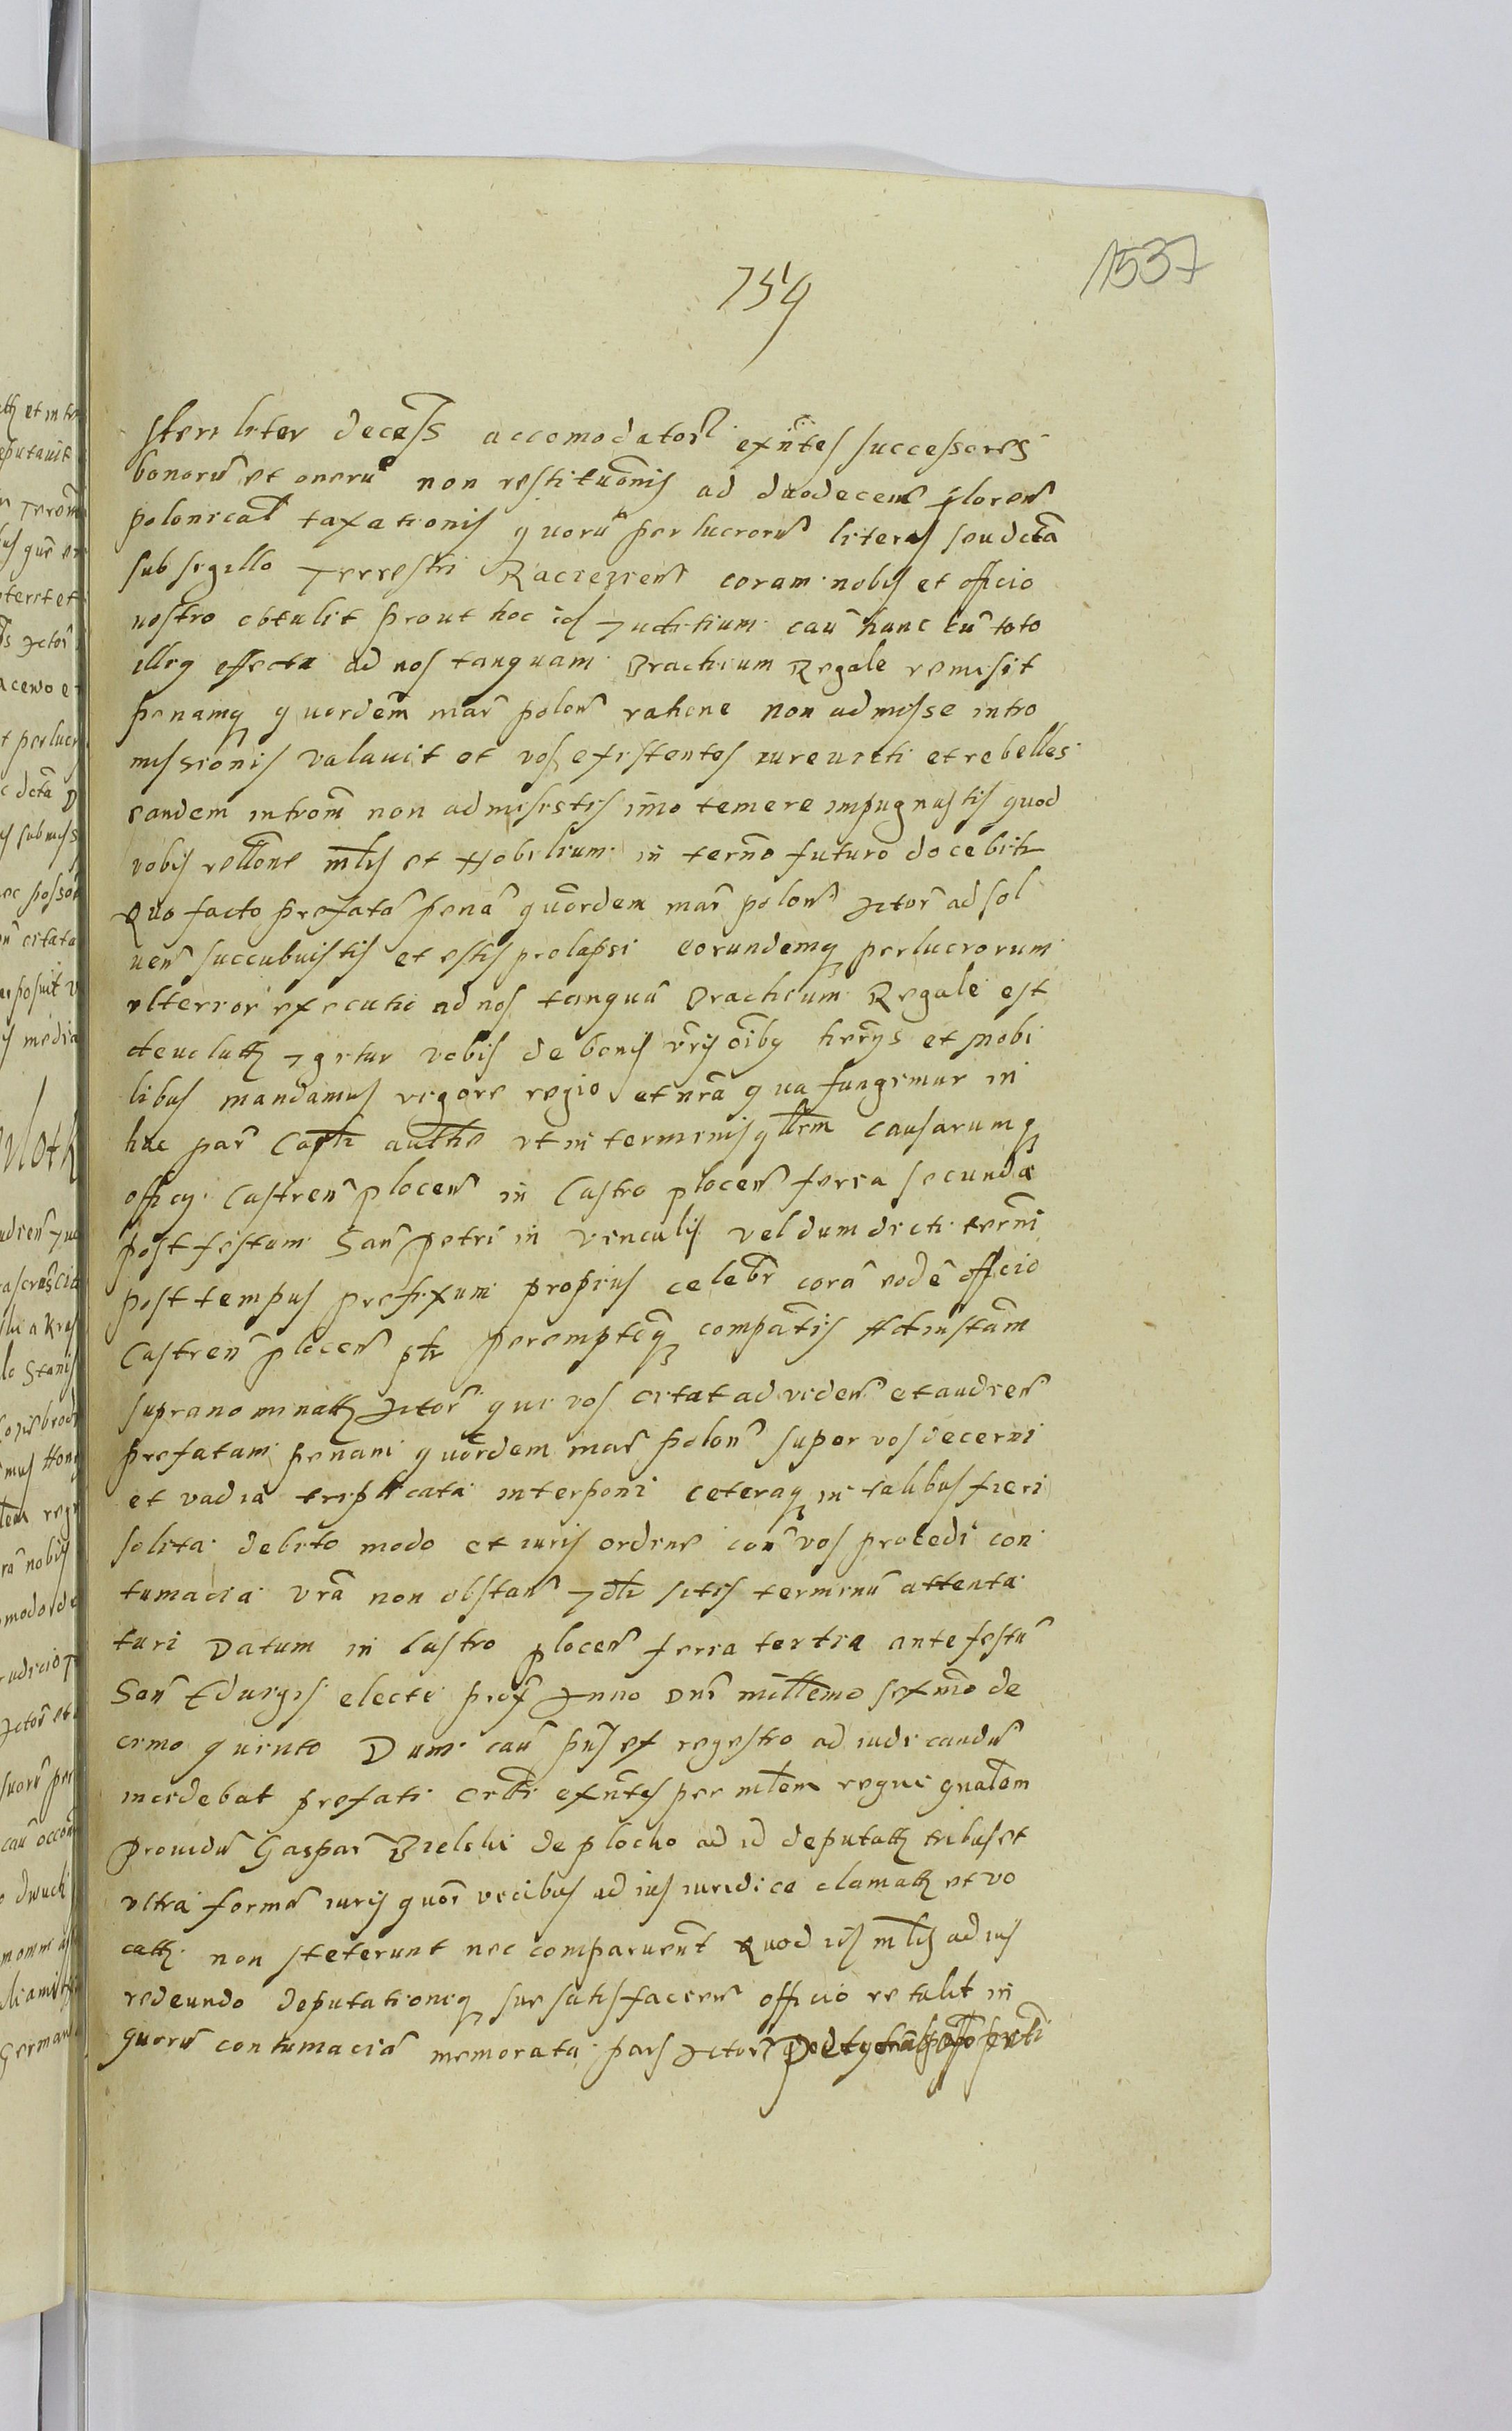 1537
759
steriliter decess accomodator exntes successores
bonoru et oneru non restituonis ad duodecem floren
polonical taxationis quoru perlucrorum literas seu dcta
sub sigillo Terrestri Raciezien coram nobis et officio
nostro obtulit prout hoc id Juditium cau hanc cu toto
illiq effectu ad nos tanquam Brachium Regale remisit
penamq quordem mar polon ratione non admisse intro
missionis valavit et vos existentes iure victi et rebelles
eandem introm non admisistis imo temere impugnastis quod
vobis rellone mlis et Nobilium in termo futuro docebitr
Quo facto prefata pena quordem mar polon Actor ad sol
uen succubuistis et estis prolapsi eorundemq perlucrorum
vlterior executio ad nos tanqua Brachium Regale est
deuolutt Igitur vobis de bonis vris oibq hrrys et mobi
libus mandamus vigore regio et nra qua fungimur in
hac par Capli autthe vt in terminis qlrm causarumq
officy Castren plocen in Castro plocen feria secunda
post festum San petri in vinculis vel dum dicti termi
post tempus prefixum propius celebr cora eode officio
Castren plocen plr peremptq compatis Ad instam
supranominatt Actor qui vos citat ad viden et audien
prefatam penam quordem mar polon super vos decerni
et vadia triplicata interponi ceteraq in talibus fieri
solita debito modo et iuris ordine con vos procedi con
tumacia vra non obstan Idlr sitis terminu attenta
turi Datum in Castro plocen feria tertia ante festu
San Eduigis electe prox Anno Dni millemo sexmo de
cimo quinto Dum cau pns ex regestro ad iudicandu
incidebat prefati citti exntes per mlem regni gnalem
prouidu Gaspar Bielski de plocko ad id deputatt tribus et
vltra forma iuris quor vicibus ad ius iuridice clamatt et vo
catt non steterunt nec comparuent Quod ids mlis ad ius
redeundo deputationiq sue satisfacien officio retulit in
quoru contumacia memorata pars Actor